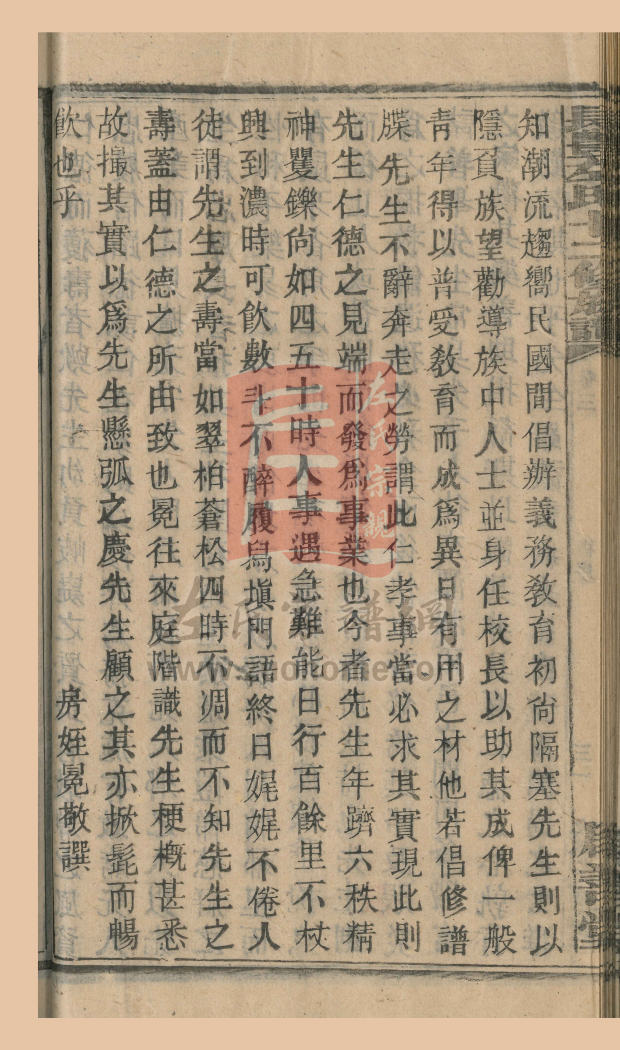 知潮流趨嚮民國間倡辦義務敎育初尙隔塞先生則以
隱負族望勸導族中人士並身任校長以助其成俾一般
靑年得以普受敎育而成爲異日有用之材他若倡修譜
牒先生不辭奔走之勞謂此仁孝事當必求其實現此則
先生仁德之見端而發爲事業也今者先生年躋六秩精
神矍鑠尙如四五十時人事遇急難能日行百餘里不杖
興到濃時可飮數斗不醉履舄塡門語終日娓娓不倦人
徒謂先生之壽當如翠柏蒼松四時不凋而不知先生之
壽蓋由仁德之所由致也冕往來庭階識先生梗槪甚悉
故撮其實以爲先生懸弧之慶先生顧之其亦掀髯而暢
飮也乎 房姪冕敬譔
左氏宗親
www.zuohome.com